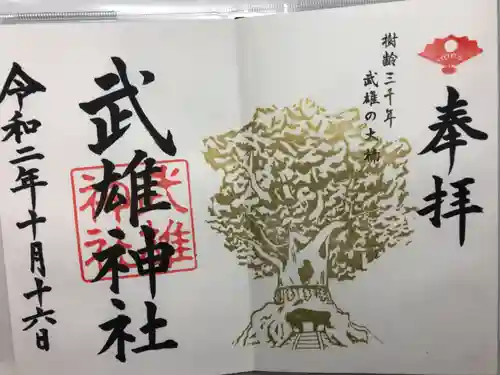 奉拝
樹齢三千年
武雄の大楠
武雄神社
武雄
神社
令和二年十月十六日